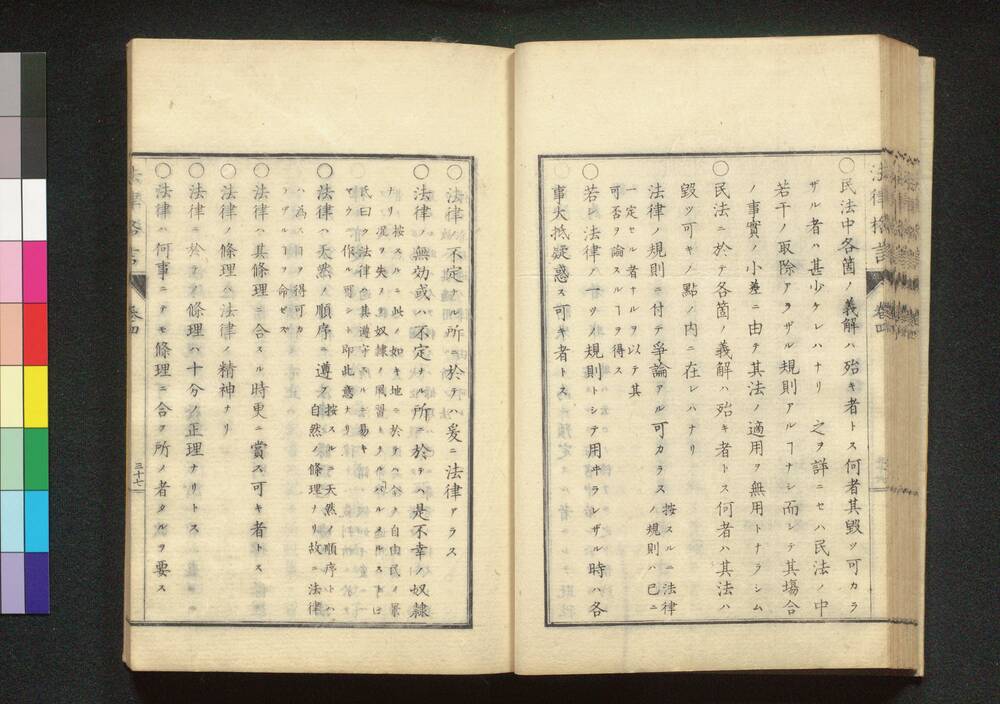 法律格言 卷四
〇民法中各箇ノ義解ハ殆キ者トス何者其毀ツ可カラ
ザル者ハ甚少ケレハナリ 之ヲ詳ニセハ民法ノ中
若干ノ取除アラザル規則アルヿナシ而シテ其塲合
ノ事實ノ小差ニ由テ其法ノ適用ヲ無用トナラシム
〇民法ニ於テ各箇ノ義解ハ殆キ者トス何者ハ其法ハ
毀ツ可キノ點ノ内ニ在レハナリ
法律ノ規則ニ付テ爭論アル可カラス 按スルニ法律
ノ規則ハ已ニ
一定セル者ナルヲ以テ其
可否ヲ論スルヿヲ得ス
若シ法律ノ一ツノ規則トシテ用ヰラレザル時ハ各
事大抵疑惑ス可キ者トス
〇法律ノ不定ナル所ニ於テハ爰ニ法律アラス
〇法律ノ無効或ハ不定ナル所ニ於テハ是不幸ノ奴隷
ナリ 按スルニ此ノ如キ地ニ於テハ全ク自由民ノ景
況ヲ失ヘ奴隷ノ風習トナル
民曰ク法律ハ其遵守
テ作ル可シト即此意ナリ
〇法律ハ天然ノ順序ニ遵フ 按スルニ天然ノ順序トハ
自然ノ條理ナリ故ニ法律
ハ為スヲ得可カ
ラザルヿヲ命セズ
〇法律ハ其條理ニ合スル時更ニ賞ス可キ者トス
〇法律ノ條理ハ法律ノ精神ナリ
〇法律ニ於テノ條理ハ十分ノ正理ナリトス
〇法律ハ何事ニテモ條理ニ合フ所ノ者タルヲ要ス
卷四
三十七